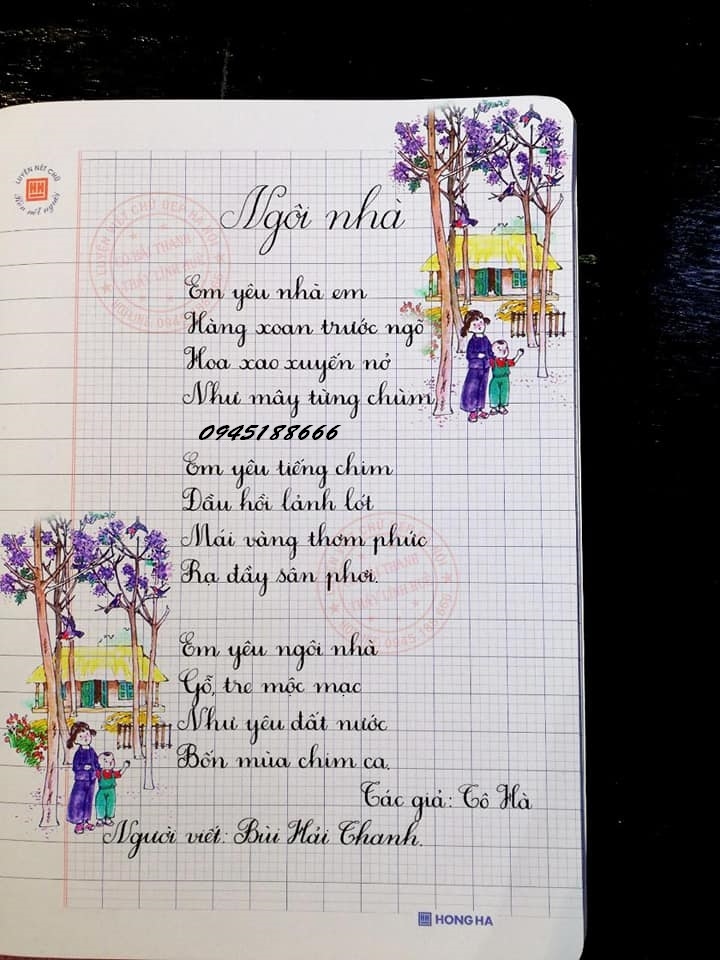 LUYỆN NÉT CHỮ
Rèn nết người
Ngôi nhà
Em yêu nhà em
Hàng xoan trước ngõ
Hoa xao xuyến nở
Như mây từng chùm
0945188666
Em yêu tiếng chim
Đầu hồi lảnh lót
Mái vàng thơm phức
Rạ đầy sân phơi.
Em yêu ngôi nhà
Gỗ, tre mộc mạc
Như yêu đất nước
Bốn mùa chim ca.
Tác giả: Tô Hà
Người viết: Bùi Hải Thanh.
HONG HA